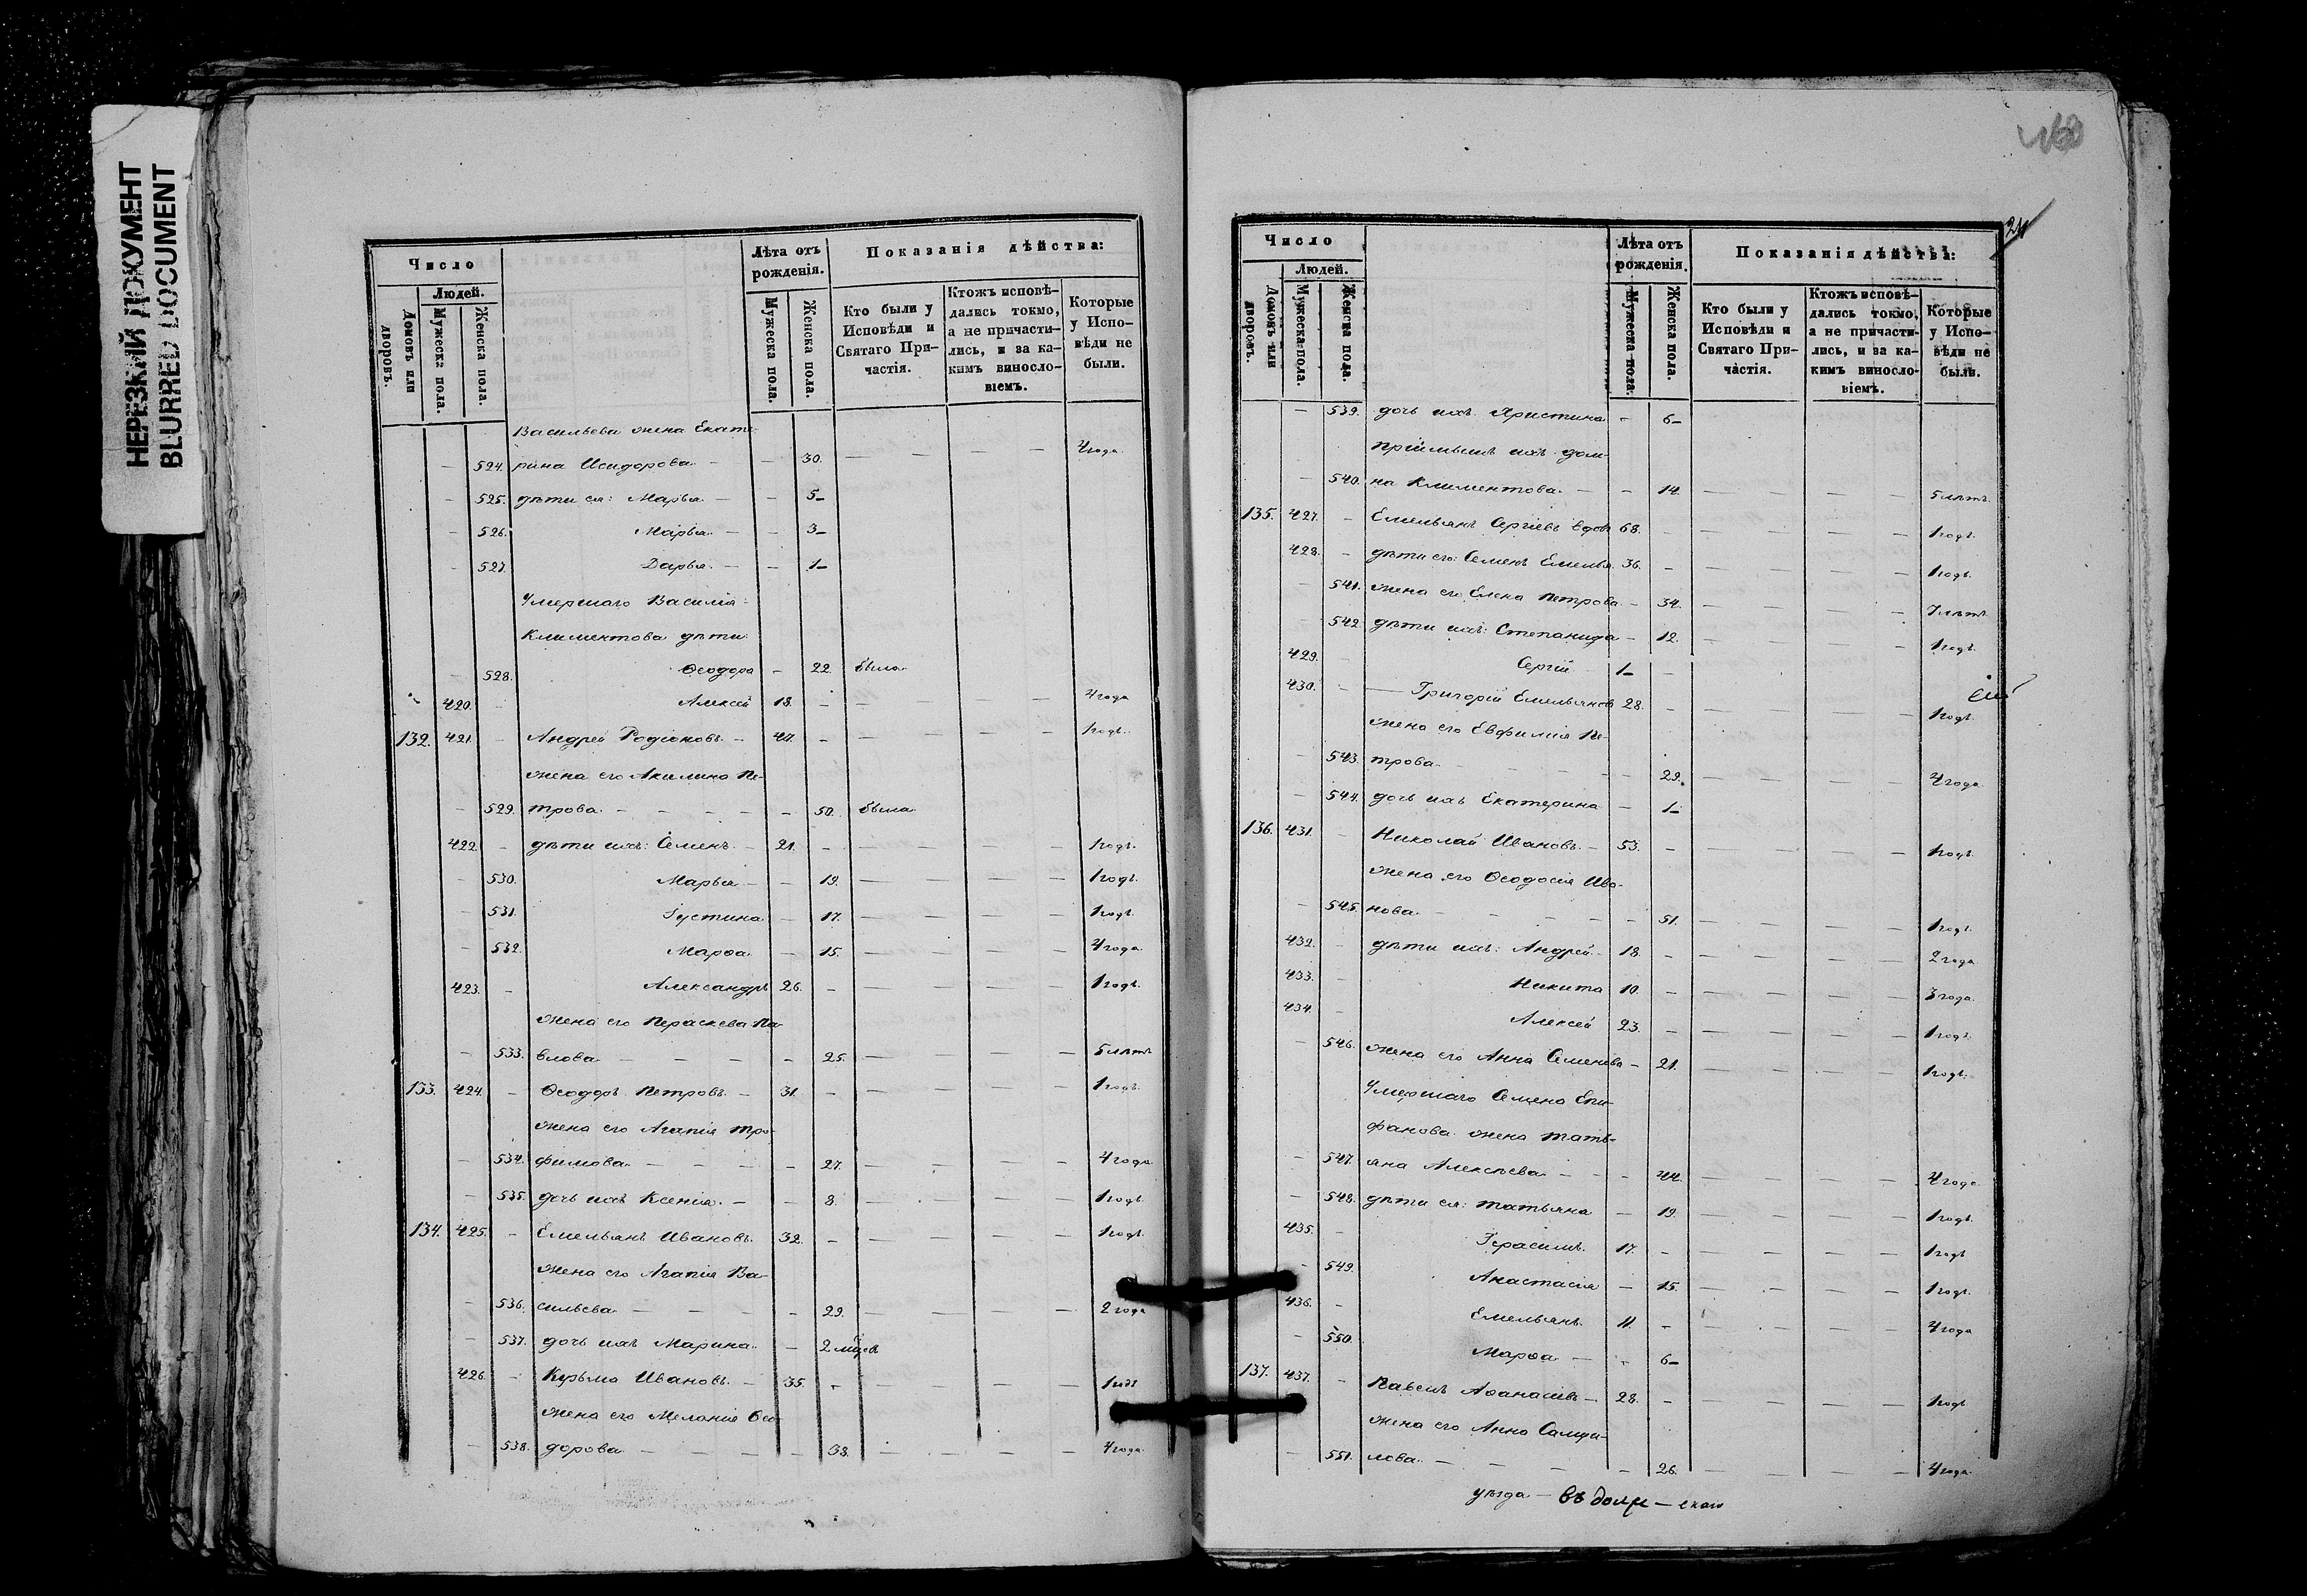 НЕРЕЗКИЙ ДОКУМЕНТ
BLURRED DOCUMENT
Число
Людей.
Домовъ или дворовъ.
Мужеска пола.
Женска пола.
Лѣта отъ рожденія.
Мужеска пола.
Женска пола.
Показанія дѣйства:
Кто были у Исповѣди и Святаго Причастія.
Ктожъ исповѣдались токмо, а не причастились, и за какимъ винословіемъ.
Которые у Исповѣди не были.
Васильева жена Екате-
524. рина Исидорова — — 30. — — — — 4 года
— 525. дѣти ея: Марья — — 5 —
— 526. Марья — — 3 —
— 527. Дарья — — 1 —
Умершаго Василія
Климентова дѣти
— 528. Ѳеодора — 22. была
420. — Алексей 18. — — — — 4 года
132. 421. — Андрей Родіоновъ — 47. — — — — — 1 годъ.
жена его Акилина Пе-
— 529. трова — — — — — 50. была
422. — дѣти ихъ: Семенъ — 21. — — — — — 1 годъ.
— 530. Марья — — 19. — — — — 1 годъ.
— 531. Іустина — 17. — — — — 1 годъ.
— 532. Марѳа — 15. — — — — 4 года
423. — Александръ 26. — — — — — 1 годъ.
жена его Пераскева Па-
— 533. влова — — — — — 25. — — 5 лѣтъ
133. 424. — Ѳеодоръ Петровъ — 31. — — — — — 1 годъ.
жена его Агапія Тро-
— 534. фимова — — — — — 27. — — — — 4 года
— 535. дочь ихъ Ксенія — — 8. — — — — 1 годъ.
134. 425. — Емельянъ Ивановъ 32. — — — — — 1 годъ
жена его Агапія Ва-
— 536. сильева — — — — — 29. — — — — 2 года
— 537. дочь ихъ Марина — 2
426. — Ивановъ — 35. — — — — — 1 годъ
жена его Меланія Ѳео-
— 538. дорова — — — — — 38. — — — — 4 года
Число
Людей.
Домовъ или дворовъ.
Мужеска пола.
Женска пола.
Лѣта отъ рожденія.
Мужеска пола.
Женска пола.
Показанія дѣйства:
Кто были у Исповѣди и Святаго Причастія.
Ктожъ исповѣдались токмо, а не причастились, и за какимъ винословіемъ.
Которые у Исповѣди не были.
— 539. дочь ихъ Христина — 6 —
пріимышъ ихъ Дом-
— 540. на Климентова — — 14. — — — — 5 лѣтъ
135. 427. — Емельянъ Сергіевъ вдовъ 68. — — — — — 1 годъ.
428. — дѣти его: Семенъ Емелья 36. — — — — — 1 годъ.
— 541. жена его Елена Петрова — 34. — — — — 7 лѣтъ.
— 542. дѣти ихъ: Степанида — 12. — — — — 1 годъ.
429. — Сергій 1 — —
430. — Григорій Емельяновъ 28. — — — — — 1 годъ.
жена его Евфимія Пе-
— 543. трова — — — — — 29. — — — — 4 года
— 544. дочь ихъ Екатерина — 1 —
136. 431. — Николай Ивановъ — 53. — — — — — 1 годъ.
жена его Ѳеодосія Ива-
— 545. нова — — — — — 51. — — — — 1 годъ.
432. — дѣти ихъ: Андрей 18. — — — — — 2 года
433. — Никита 10. — — — — — 3 года.
434. — Алексей 23. — — — — — 1 годъ.
— 546. жена его Анна Семенова — 21. — — — — 1 годъ.
Умершаго Семена Епи-
фанова жена Тать-
— 547. яна Алексѣева — — 44. — — — — 4 года
— 548. дѣти ея: Татьяна — 19. — — — — 1 годъ.
435. — Герасимъ 17. — — — — — 1 годъ
— 549. Анастасія — 15. — — — — 1 годъ.
436. — Емельянъ 11. — — — — — 4 года
— 550. Марѳа — — 6 —
137. 437. — Павелъ Аѳанасіевъ — 28. — — — — — 1 годъ
жена его Анна Самуи-
— 551. лова — — — — — 26. — — — — 4 года
уѣзда —